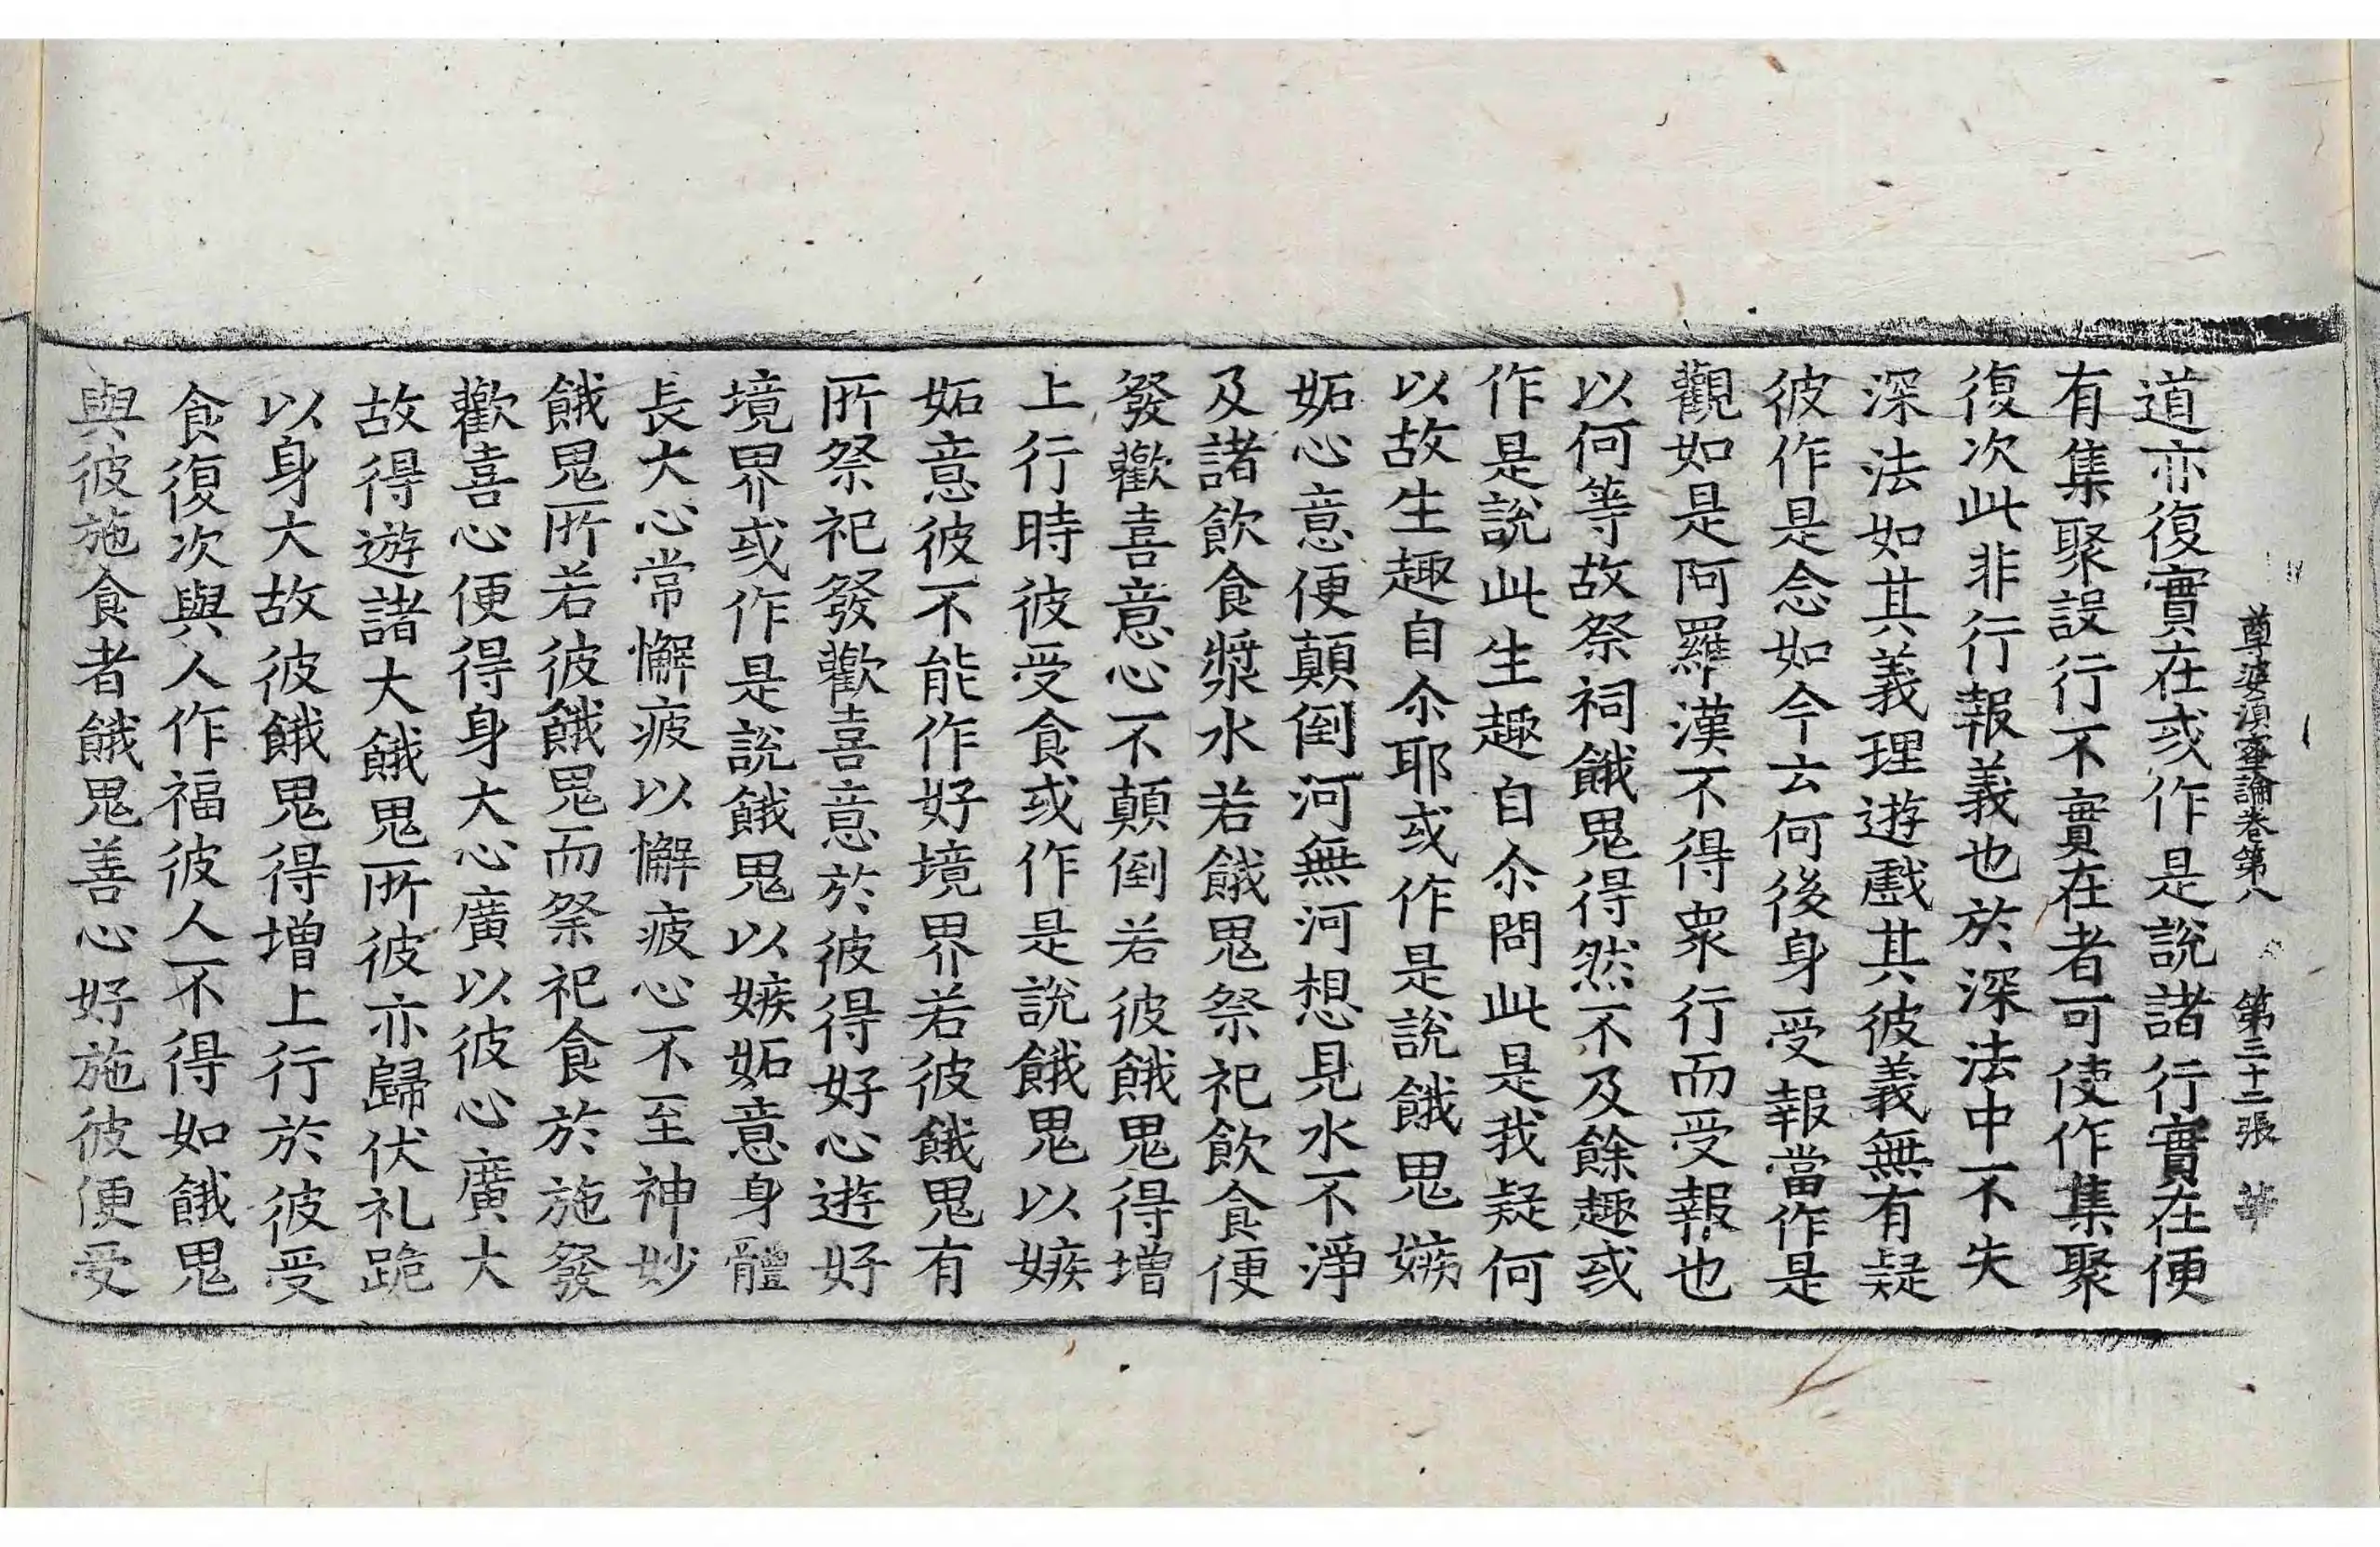 尊婆湏蜜論卷第八 第三十二張
道亦復實在或作是說諸行實在便
有集聚設行不實在者可使作集聚
復次此非行報義也於深法中不失
深法如其義理遊戲其彼義無有疑
彼作是念如今云何後身受報當作是
觀如是阿羅漢不得衆行而受報也
以何等故祭祠餓鬼得然不及餘趣或
作是說此生趣自尒問此是我疑何
以故生趣自尒耶或作是說餓鬼嫉
妬心意便顛倒河無河想見水不淨
及諸飲食漿水若餓鬼祭祀飲食便
發歡喜意心不顛倒若彼餓鬼得增
上行時彼受食或作是說餓鬼以嫉
妬意彼不能作好境界若彼餓鬼有
所祭祀發歡喜意於彼得好心遊好
境界或作是說餓鬼以嫉妬意身體
長大心常懈疲以懈疲心不至神妙
餓鬼所若彼餓鬼而祭祀食於施發
歡喜心便得身大心廣以彼心廣大
故得遊諸大餓鬼所彼亦歸伏礼跪
以身大故彼餓鬼得增上行於彼受
食復次與人作福彼人不得如餓鬼
與彼施食者餓鬼善心好施彼便受